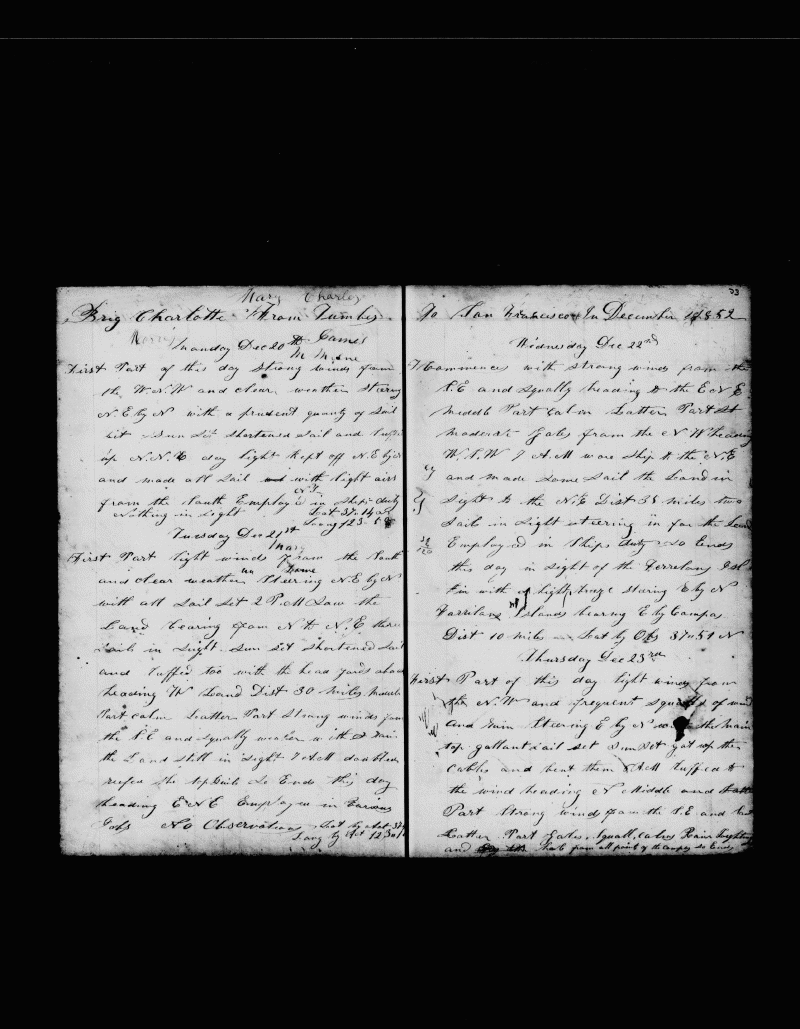 Mary Charles
Brig Charlotte From Tumbes
Monday Dec 20th
First Part of this day Strong winds from
the W.N.W and clear weather Stering
N.E by N with a prudent quanty of Sail
Set Sun Set Shortened Sail and luffed
up N.N.E day light Kept off N.E by N
and made all Sail with light airs
from the South Employed in Ships duty
Nothing in Sight Lat 37.14
Long 123
Tuesday Dec 21st
First Part light winds from the South
and clear weather Steering N.E by N
with all Sail Set 2 P.M Saw the
Land bearing from N to N.E three
Sails in Sight Sun Set Shortened Sail
and luffed too with the head yards aback
heading W Land Dist 30 miles
Part calm Latter Part Strong winds from
the S.E and Squally weather with
the Land still in Sight 7 A.M doubled
reefed the topsails So Ends this day
heading E N E Employed in Various
Jobs No Observation Lat by
Long by
33
To San Francisco In December 1852
Wednesday Dec 22nd
Commences with Strong winds from the
S.E and Squally heading to the E N E
middle Part calm Latter Part
moderate Gales from the N W heading
W.S.W 7 A.M wore Ship to the N.E
and made Some Sail the Land in
Sight to the N.E Dist 35 miles two
Sails in Sight steering in for the Land
Employed in Ships duty So Ends
this day in Sight of the Ferrelans
with light breeze staring E by N
Farrilans Islands bearing E by Compas
Dist 10 miles Lat by Obs 37.51 N
Thursday Dec 23rd
First Part of this day light winds from
the N.W and frequent squalls of wind
and rain Steering E by N the main
top gallant sail set Sun Set got up the
Cables and bent them A.M luffed to
the wind heading N Middle and Latter
Part Strong winds from the S.E and
Latter Part Gales, Squalls, Rain
and from all point of the compas So Ends